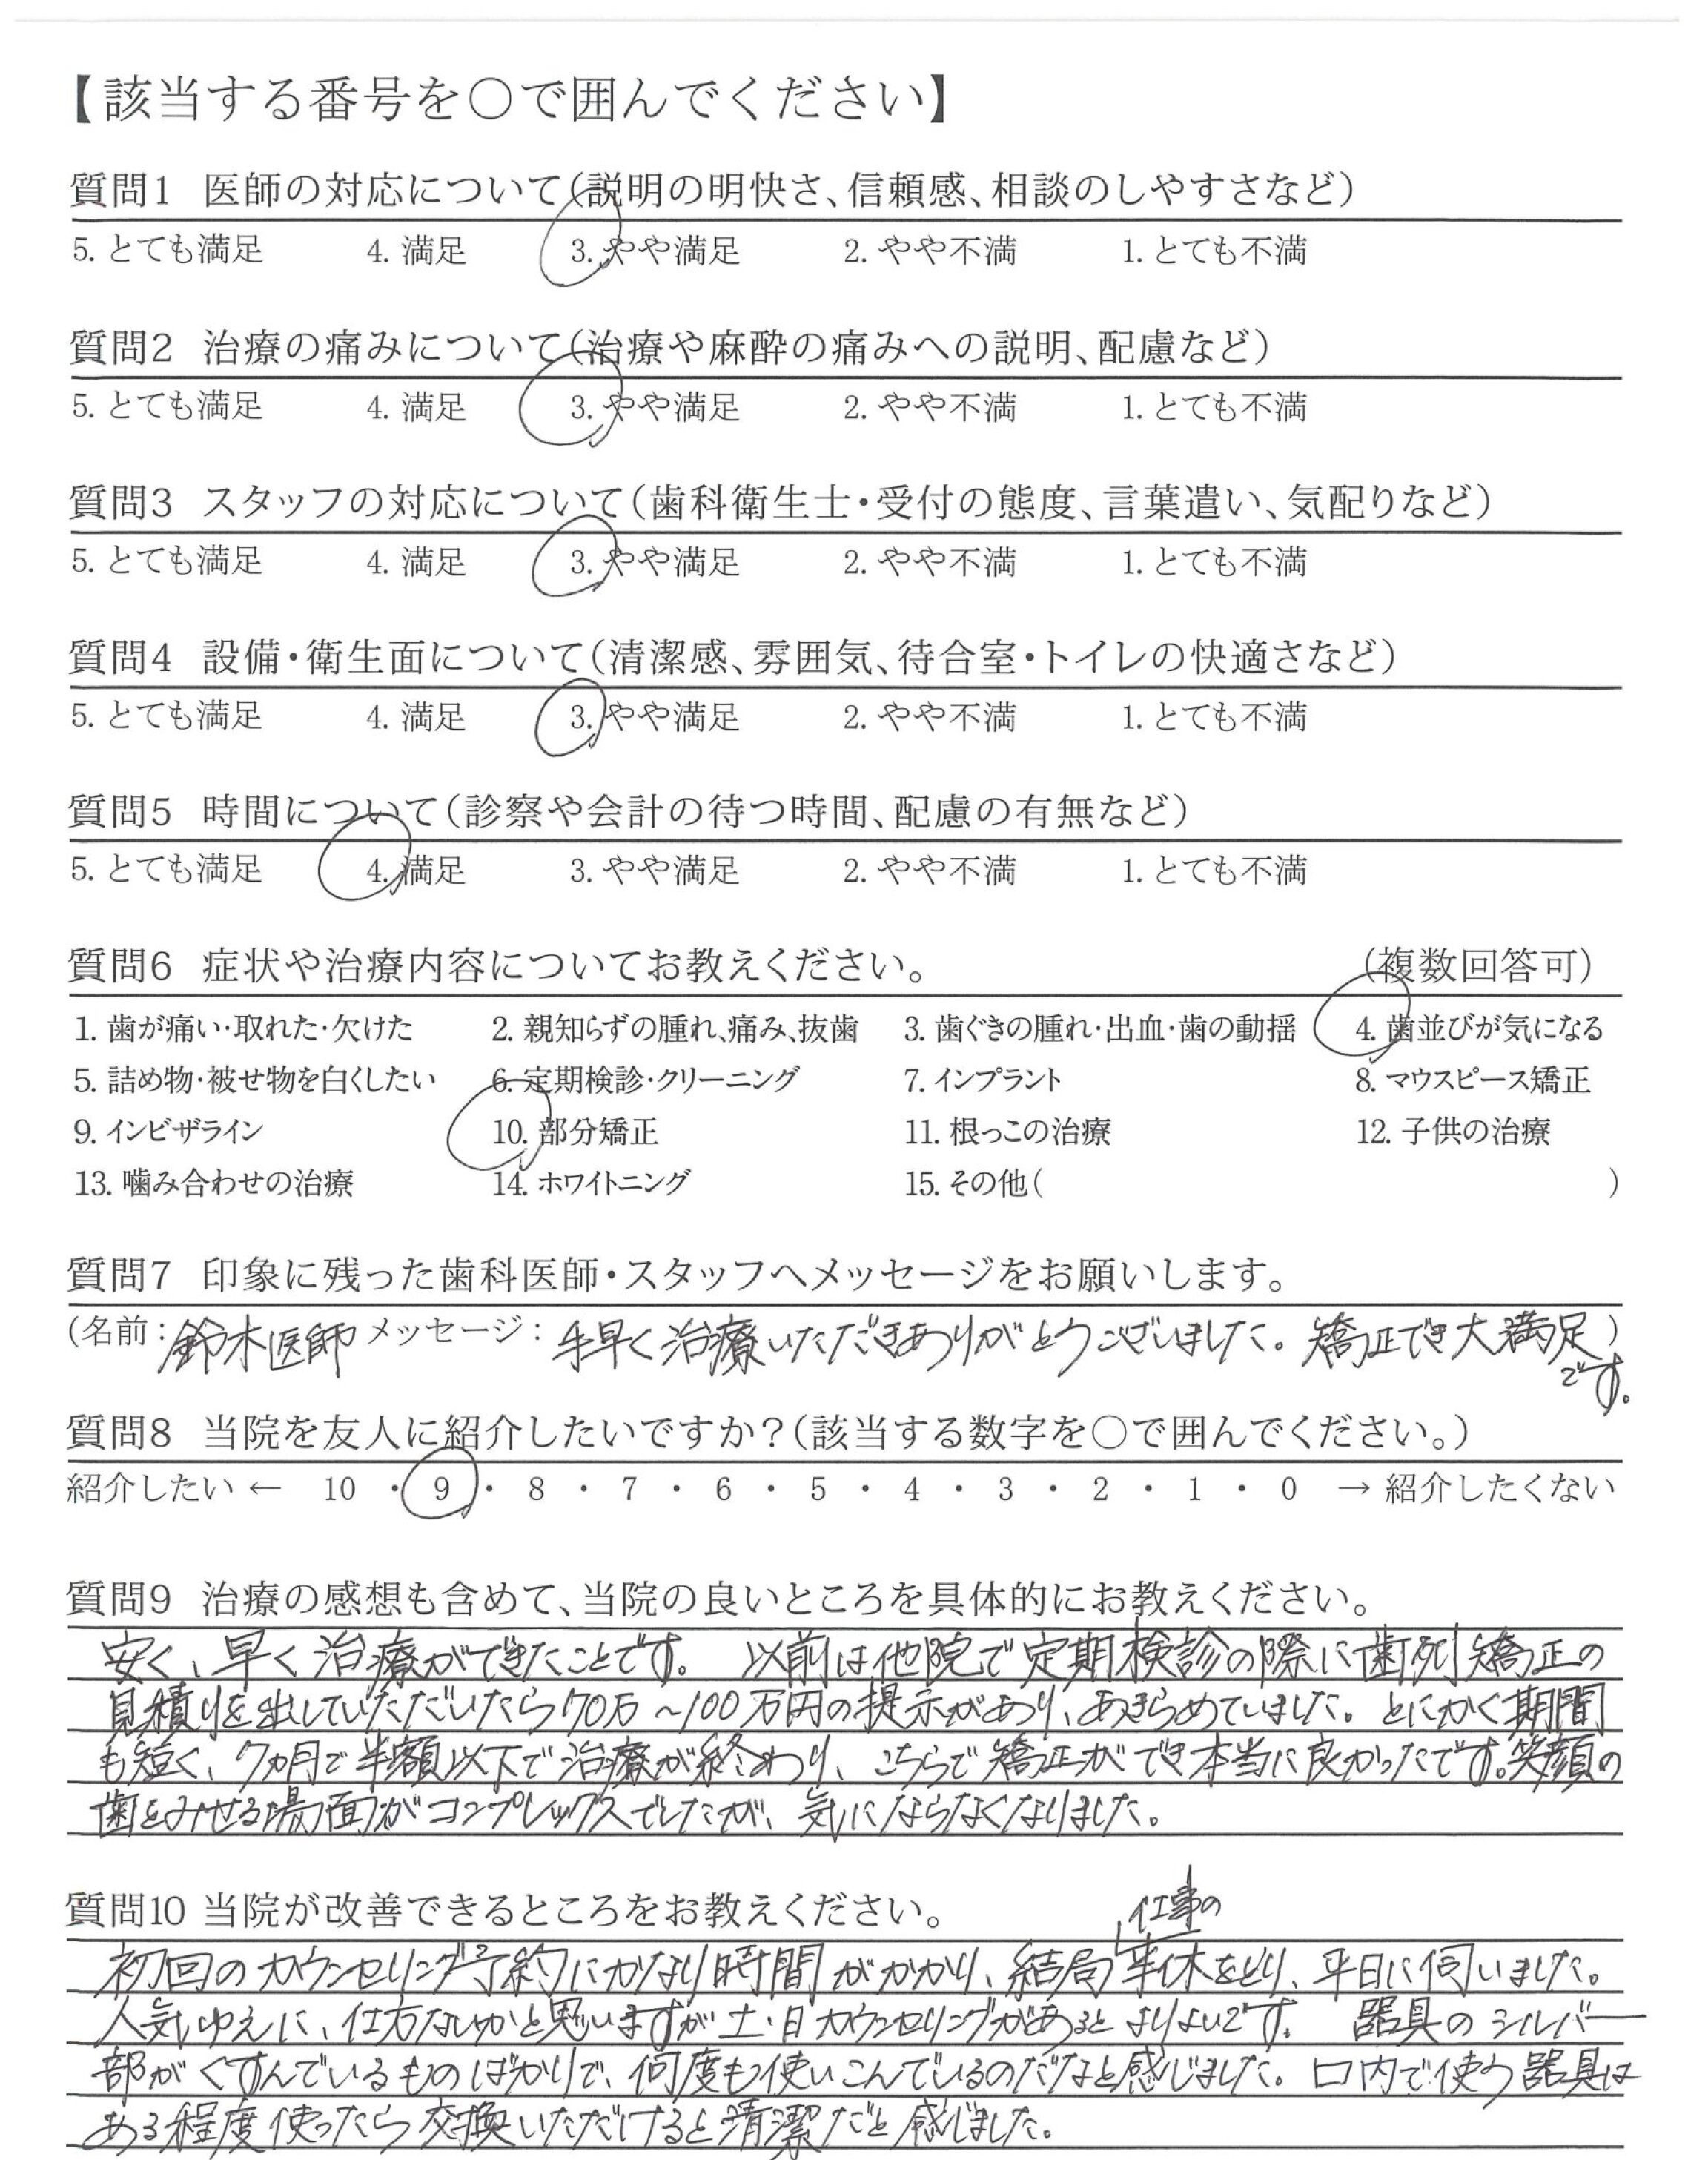 【該当する番号を○で囲んでください】
質問1 医師の対応について(説明の明快さ、信頼感、相談のしやすさなど)
5. とても満足 4. 満足 3. やや満足 2. やや不満 1. とても不満
質問2 治療の痛みについて(治療や麻酔の痛みへの説明、配慮など)
5. とても満足 4. 満足 3. やや満足 2. やや不満 1. とても不満
質問3 スタッフの対応について(歯科衛生士・受付の態度、言葉遣い、気配りなど)
5. とても満足 4. 満足 3. やや満足 2. やや不満 1. とても不満
質問4 設備・衛生面について(清潔感、雰囲気、待合室・トイレの快適さなど)
5. とても満足 4. 満足 3. やや満足 2. やや不満 1. とても不満
質問5 時間について(診察や会計の待つ時間、配慮の有無など)
5. とても満足 4. 満足 3. やや満足 2. やや不満 1. とても不満
質問6 症状や治療内容についてお教えください。 (複数回答可)
1. 歯が痛い・取れた・欠けた 2. 親知らずの腫れ、痛み、抜歯 3. 歯ぐきの腫れ・出血・歯の動揺 4. 歯並びが気になる
5. 詰め物・被せ物を白くしたい 6. 定期検診・クリーニング 7. インプラント 8. マウスピース矯正
9. インビザライン 10. 部分矯正 11. 根っこの治療 12. 子供の治療
13. 噛み合わせの治療 14. ホワイトニング 15. その他( )
質問7 印象に残った歯科医師・スタッフへメッセージをお願いします。
(名前: 鈴木医師 メッセージ: 手早く治療いただきありがとうございました。矯正でき大満足)
です。
質問8 当院を友人に紹介したいですか?(該当する数字を○で囲んでください。)
紹介したい ← 10 ・ 9 ・ 8 ・ 7 ・ 6 ・ 5 ・ 4 ・ 3 ・ 2 ・ 1 ・ 0 → 紹介したくない
質問9 治療の感想も含めて、当院の良いところを具体的にお教えください。
安く、早く治療ができたことです。 以前は他院で定期検診の際に歯列矯正の
見積りを出していただいたら70万~100万円の提示があり、あきらめていました。とにかく期間
も短く、7ヵ月で半額以下で治療が終わり、こちらで矯正ができ本当に良かったです。笑顔の
歯をみせる場面がコンプレックスでしたが、気にならなくなりました。
質問10 当院が改善できるところをお教えください。
仕事の
初回のカウンセリング予約にかなり時間がかかり、結局半休をとり、平日に伺いました。
人気ゆえに、仕方ないかと思いますが土・日カウンセリングがあるとよりよいです。 器具のシルバー
部がくすんでいるものばかりで、何度も使いこんでいるのだなと感じました。口内で使う器具は
ある程度使ったら交換いただけると清潔だと感じました。